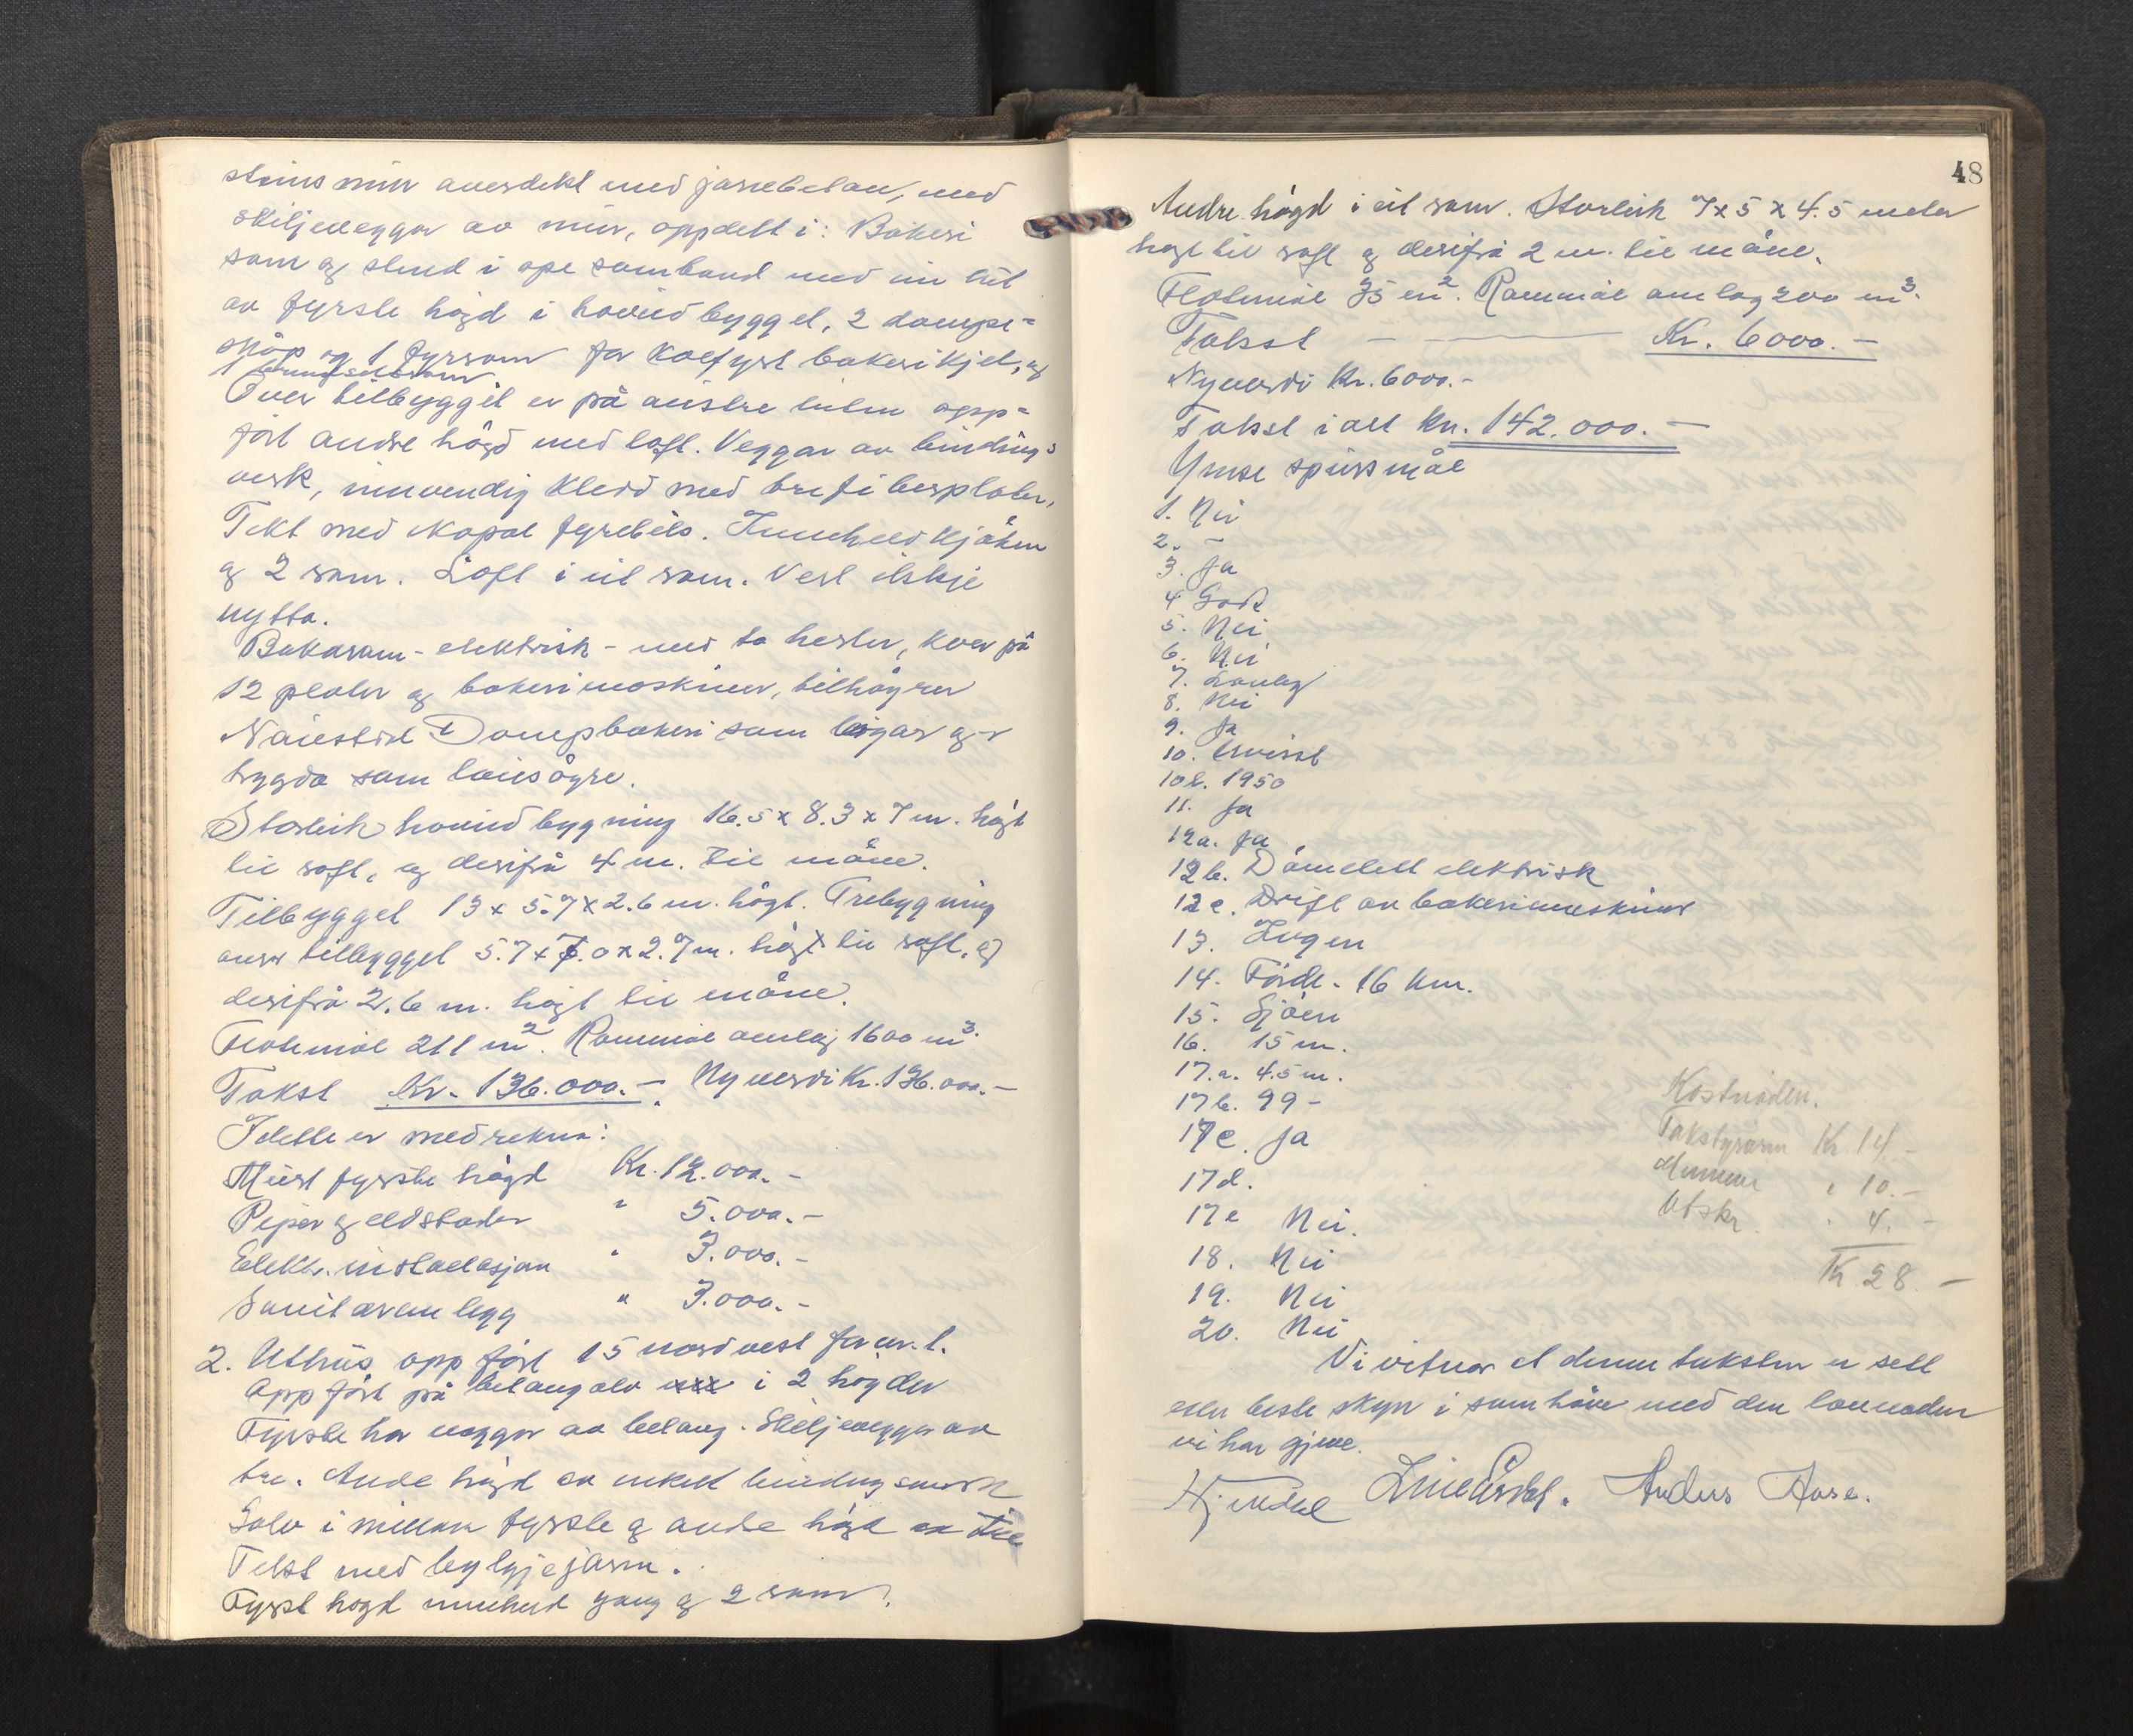 steinsmur averdekt med jarnbetong, med
skiljeveggar av mur, oppdelt i: Bakeri
som og stend i ope samband med ein lut
av fyrste høgd i hovudbygget, 2 dampe=
skåp og 1 fyrrom for kolfyrt bakerikjel, og
1
Over tilbygget er på austre luten opp=
ført andre høgd med loft. Veggar av bindings
verk, innvendig kledd med trefiberplater,
Tekt med Kopal fyrebils. Inneheld kjøken
og 2 rom. Loft i eit rom. Vert ikkje
nytta.
Bakaromn - elektrisk - med to herder, kver på
12 plater og bakerimaskiner, tilhøyrer
Naustdal Dampbakeri som leigar og
bygda som lausøyre.
Storleik hovudbygning 16.5 x 8.3 x 7 m. høgt
til raft, og derifrå 4 m. til måne.
Tilbygget 13 x 5.7 x 2.6 m. høgt. Trebygning
over tilbygget 5.7 x 7.0 x 2.7 m. høgt til raft, og
derifrå 2.6 m. høgt til måne.
Flatemål 211 m². Rommål omlag 1600 m³.
Takst Kr. 136.000.- Nyverdi Kr. 136.000.-
I dette er medrekna:
Murt fyrste høgd Kr. 12.000.-
Piper og eldstader " 5.000.-
Elektr. installasjon " 3.000.-
Sanitæranlegg " 3.000.-
2. Uthus oppført 15 nordvest for nr. 1.
Oppført på betonggolv xxx i 2 høgder
Fyrste har veggar av betong. Skiljeveggar av
tre. Andre høgd av enkelt bindingsverk
Golv i millom fyrste og andre høgd av tre
Tekt med bylgjejarn.
Fyrst høgd inneheld gang og 2 rom.
48
Andre høgd i eit rom. Storleik 7 x 5 x 4.5 meter
høgt til raft og derifrå 2 m. til måne.
Flatemål 35 m². Rommål omlag 200 m³.
Takst - Kr. 6000.-
Nyverdi Kr. 6000.-
Takst i alt kr. 142.000.-
Ymse spursmål
1. Nei
2. -
3. Ja
4 God
5. Nei
6. Nei
7. Lovleg
8. Nei
9. Ja
10. Uvisst
10b. 1950
11. Ja
12a. Ja
12b. Dåmelelt elektrisk
12c. Drift av bakerimaskiner
13. Ingen
14. Førde - 16 km.
15. Sjøen
16. 15 m.
17.a. 4.5 m.
17b. 99 -
17c. Ja
17d.
17e Nei.
18. Nei
19. Nei
20. Nei
Kostnaden.
Takstgjerin Kr 14.-
Mennene " 10.-
Utskr. " 4.-
Kr 28.-
Vi vitnar at denne taksten er sett
etter beste skyn i samhøve med den lovnaden
vi har gjeve.
Anders Aase.